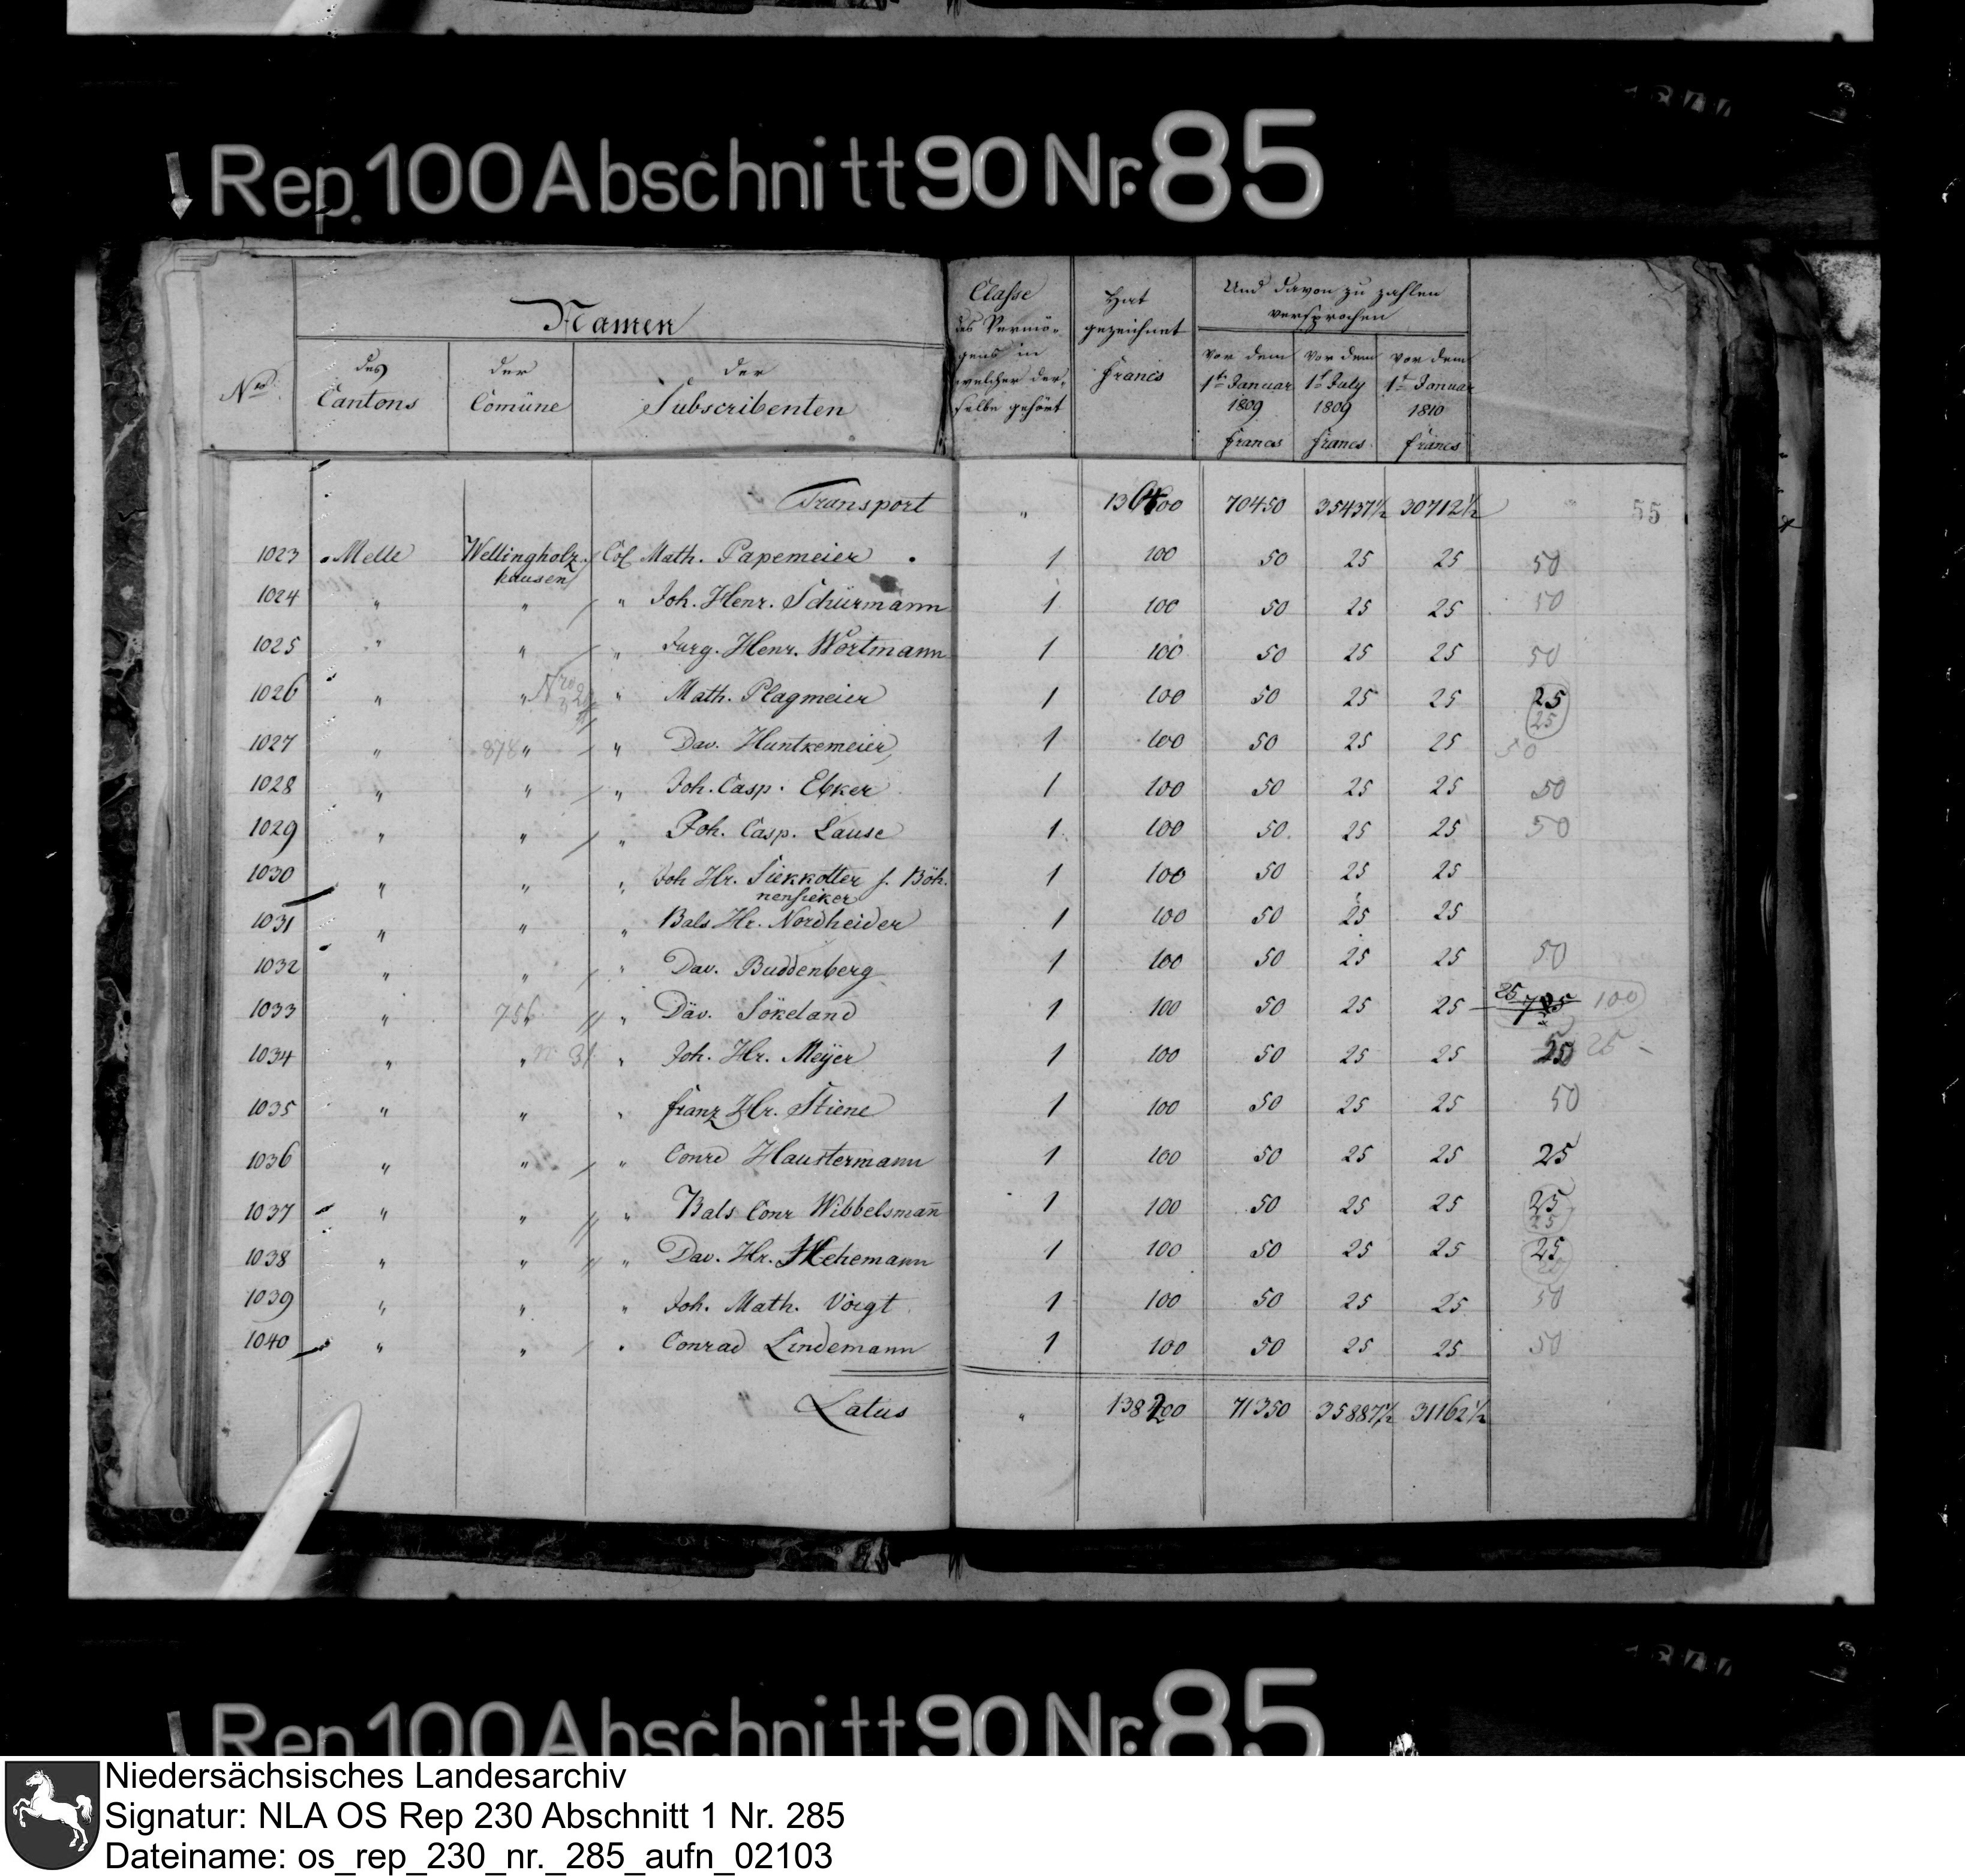 Rep. 100 Abschnitt 90 Nr. 85
Namen
Classe des Vermö- gens in welcher der- selbe gehört
Hat gezeichnet Francs
Und davon zu zahlen versprochen
Nro.
des Cantons
der Comüne
der Subscribenten
vor dem 1t Januar 1809 Francs
vor dem 1t July 1809 Francs
vor dem 1t Januar 1810 Francs
Transport " 136400 70450 35437½ 30712½ 55
1023 Melle Wellingholz- Col Math. Papemeier 1 100 50 25 25 50
hausen
1024 " " " Joh. Henr. Schürmann 1 100 50 25 25 50
1025 " " " Jurg. Henr. Wortmann 1 100 50 25 25 50
1026 " " Nro " Math. Plagmeier 1 100 50 25 25 25
25
1027 " 878 " " Dav. Huntkemeier 1 100 50 25 25 50
1028 " " " Joh. Casp. Ebker 1 100 50 25 25 50
1029 " " " Joh. Casp. Lause 1 100 50 25 25 50
1030 " " " Joh Hr. Siekkotter s. Böh- 1 100 50 25 25
nensieker
1031 " " " Bals Hr. Nordheider 1 100 50 25 25
1032 " " " Dav. Buddenberg 1 100 50 25 25 50
1033 " 756 " " Dav. Sökeland 1 100 50 25 25 25 100
1034 " " 31 " Joh. Hr. Meÿer 1 100 50 25 25 25
1035 " " " Franz Hr. Stiene 1 100 50 25 25 50
1036 " " " Conrd Haustermann 1 100 50 25 25 25
1037 " " " Bals Conr Wibbelsman̄ 1 100 50 25 25 25
25
1038 " " " Dav. Hr. Hehemann 1 100 50 25 25 25
1039 " " " Joh. Math. Voigt 1 100 50 25 25 50
1040 " " " Conrad Lindemann 1 100 50 25 25 50
Latus " 138200 71350 35887½ 31162½
Rep. 100 Abschnitt 90 Nr. 85
Niedersächsisches Landesarchiv
Signatur: NLA OS Rep 230 Abschnitt 1 Nr. 285
Dateiname: os_rep_230_nr._285_aufn_02103